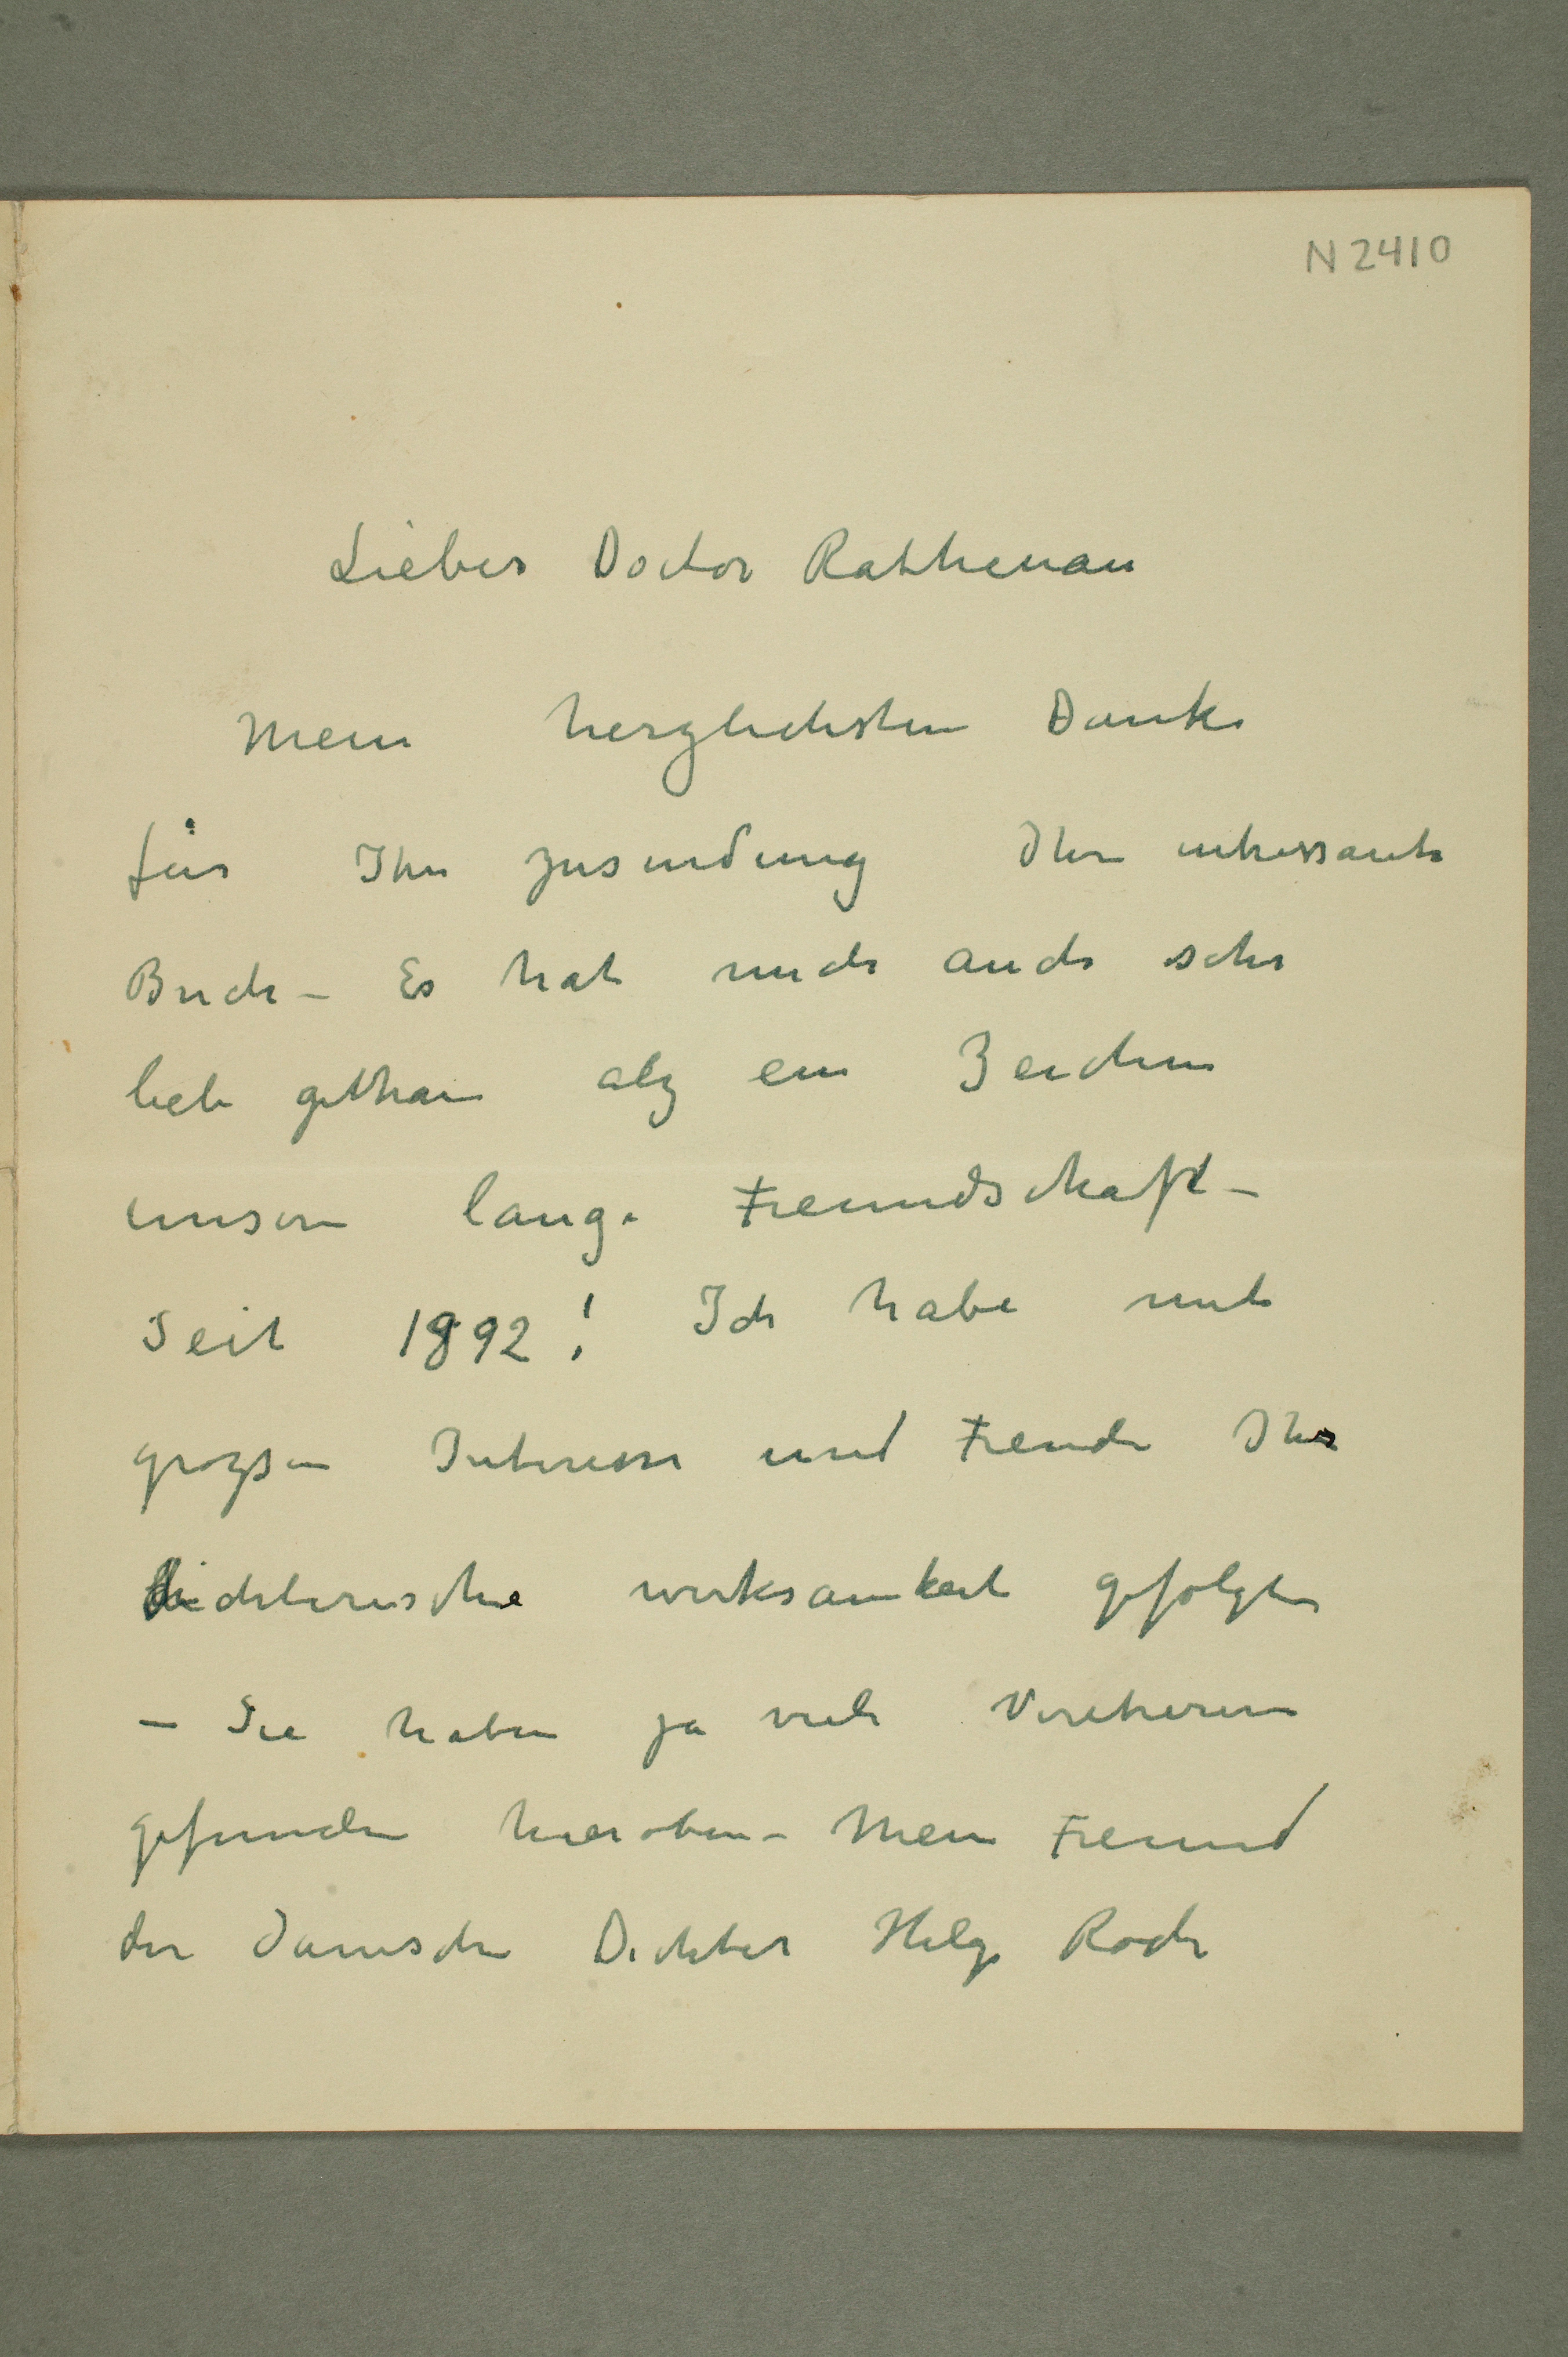 N 2410
Lieber Doctor Rathenau
Mein herzlichsten Danke
für Ihre zusendung Ihre intressante
Buch – Es hat mich auch sehr
lieb gethan alz ein Zeichen
unsern lange Freundschaft –
Seit 1892! Ich habe mit
grozsen Interesse und Freude Ihr
dichterische wirksamkeit gefolgt
– Sie haben ja viele Verehreren
gefunden hieroben – Mein Freund
der Danische Dichter Helge Rode